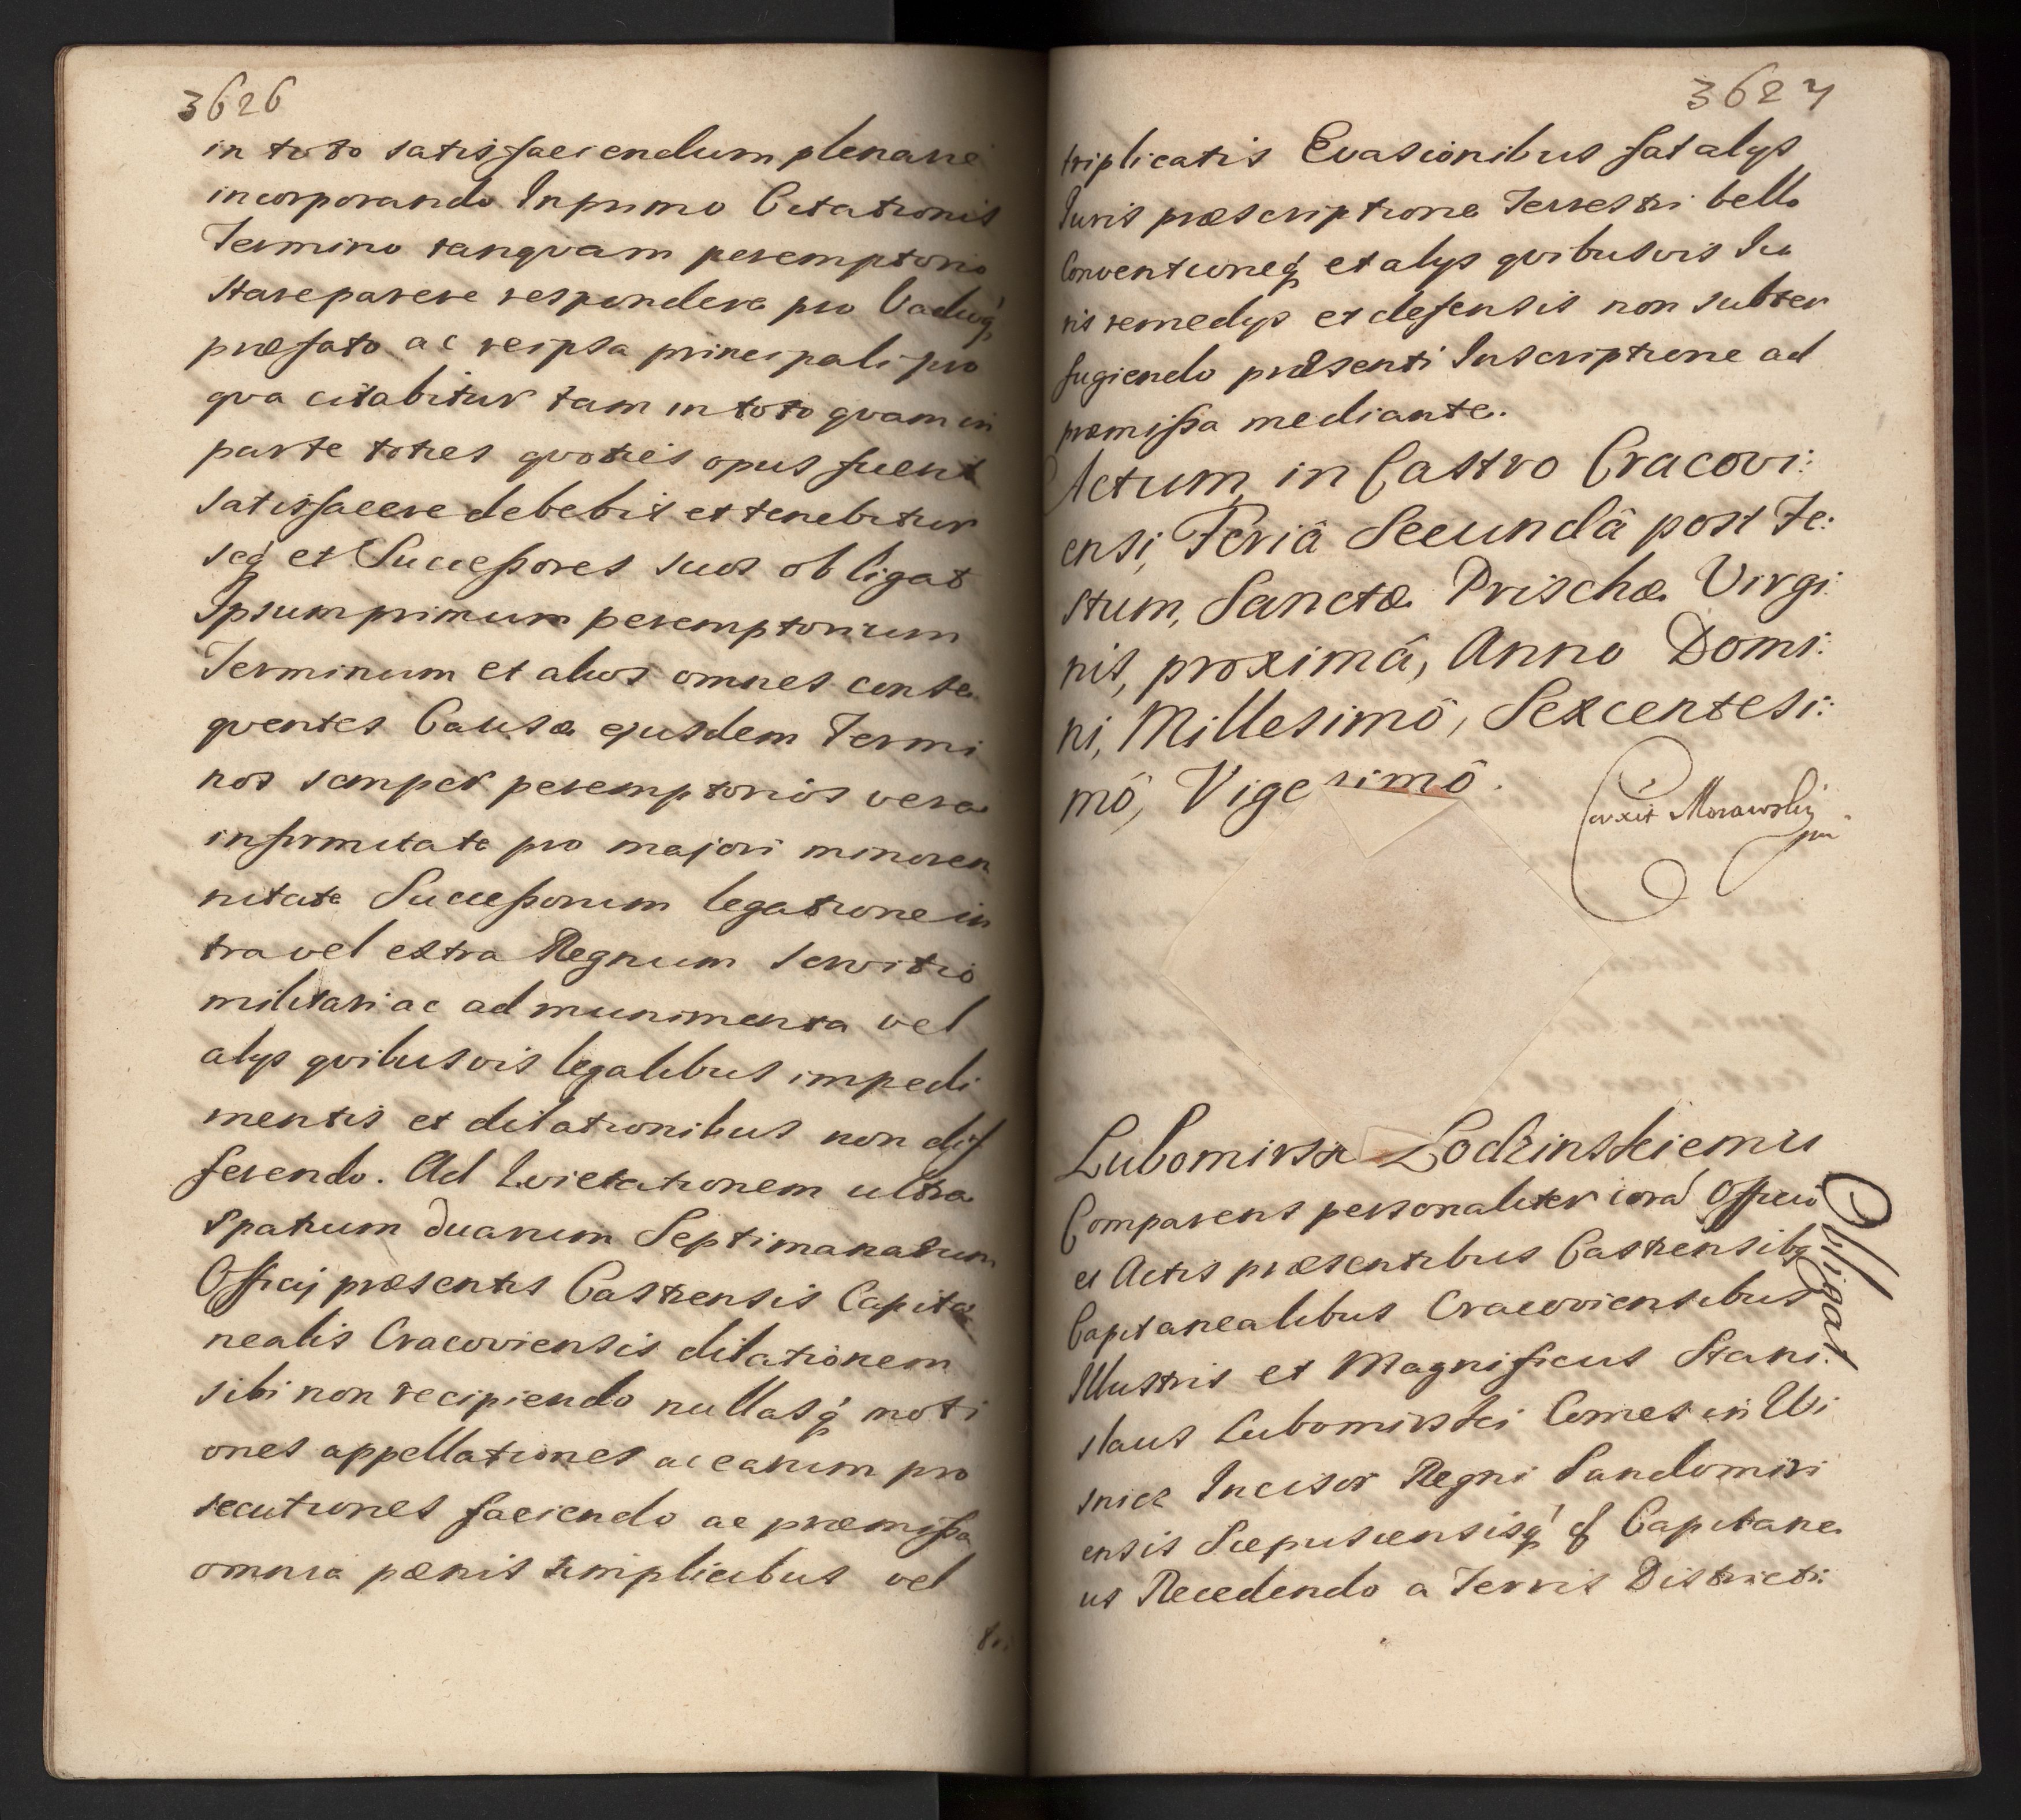 3626
in toto satisfaciendum plenarie
incorporando Inprimo Citationis
Termino tanqvam peremptorio
stare parere respondere pro Vadioq́
præfato ac reipsa principali pro
qva citabitur tam in toto qvam in
parte toties qvoties opus fuerit
satisfacere debebit et tenebitur
seq́ et Successores suos obligat
Ipsum primum peremptorium
Terminum et alios omnes conse
qventes Causæ ejusdem Termi
nos semper peremptorios vera
infirmitate pro majori minoren
nitate Successorum legatione in
tra vel extra Regnum servitio
militari ac ad munimenta vel
alys qvibusvis legalibus impedi
mentis et dilationibus non dif
ferendo. Ad Qvietationem ultra
spatium duarum Septimanarum
Officij præsentis Castrensis Capita
nealis Cracoviensis dilationem
sibi non recipiendo nullasq́ moti
ones appellationes ac earum pro
secutiones faciendo ac præmissa
omnia pœnis simplicibus vel
3627
triplicatis Evasionibus fatalys
Iuris præscriptione Terrestri bello
Conventioneq́ et alys qvibusvis Iu
ris remedys et defensis non subter
fugiendo præsenti Inscriptione ad
præmissa mediante.
Actum, in Castro Cracovi:
ensi, Feriâ Secundâ post Fe:
stum, Sanctæ Prischæ Virgi:
nis, proximâ, Anno Domi:
ni, Millesimô, Sexcentesi:
mô, Vigesimô.
Morawskij
Lubomirski Lodzinskiemu
Obligat
Comparens personaliter corā Officio
et Actis præsentibus Castrensibq
Capitanealibus Cracoviensibus
Illustris et Magnificus Stani:
slaus Lubomirski Comes in Wi
snicz Incisor Regni Sandomiri
ensis Scepusiensisq́ &c Capitane
us Recedendo a Terris Districti: